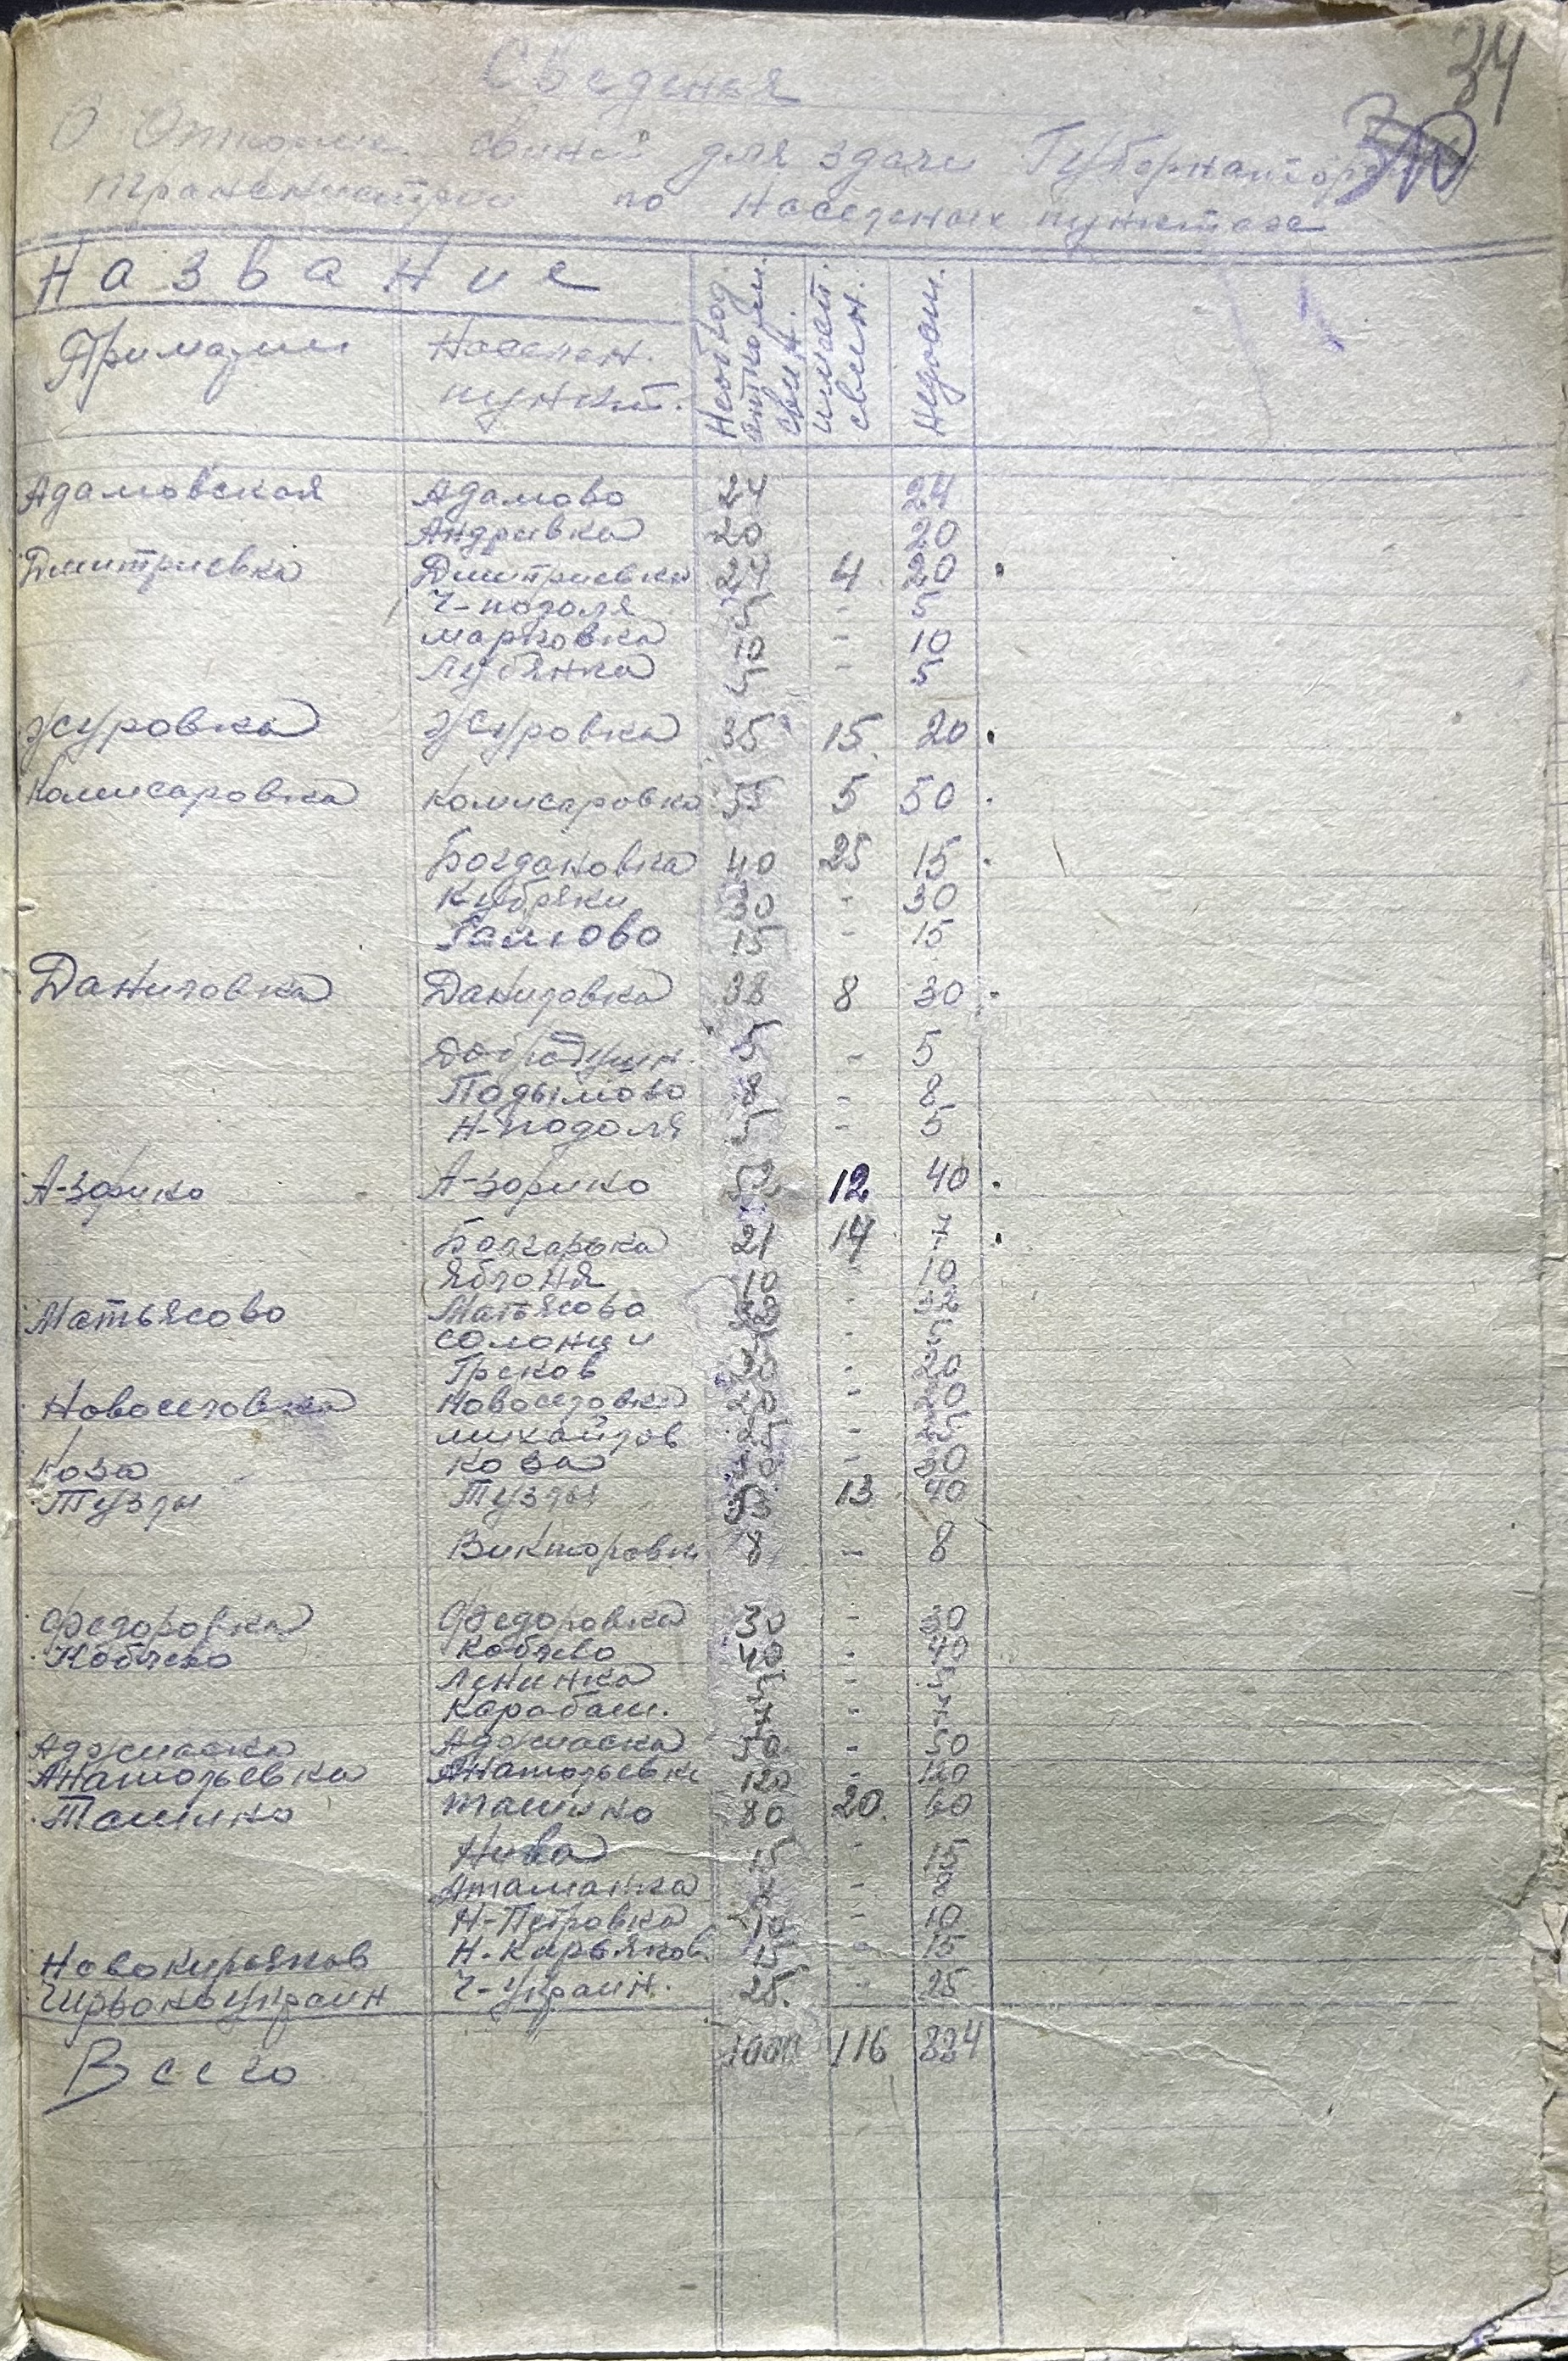 34
Сведенья
О Откорме свиней для здачи Губернаторст
транснистрии по населеных пунктах
Название
Примэрии Населен. пункт. Необход. откорм. свин. имеет. свин. Недост.
Адамовская Адамово 24 24
Андривка 20 20
Дмитриевка Дмитриевка 24 4 20
Ч-подоля 5 - 5
Марковка 10 - 10
Лубянка 5 - 5
Журовка Журовка 35 15 20
Комисаровка Комисаровка 55 5 50
Богдановка 40 25 15
Кубряки 30 - 30
Галюво 15 - 15
Даниловка Даниловка 38 8 30
Добродушн. 5 - 5
Подымово 8 - 8
Н-подоля 5 - 5
А-зорико А-зорико 52 12 40
Болгарька 21 14 7
Яблоня 10 - 10
Матьясово Матьясово 32 - 32
Солонци 5 - 5
Греков 20 - 20
Новоселовка Новоселовка 20 - 20
михайлов
Коза Коза 30 - 30
Тузлы Тузлы 53 13 40
Викторовк 8 - 8
Федоровка Федоровка 30 - 30
Кобпево Кобпево 40 - 40
Ленинка 5 - 5
Карабаш. 7 - 7
Аджиаска Аджиаска 50 - 50
Анатольевка Анатольевка 120 - 120
Ташино Ташино 80 20 60
Нива 15 - 15
Атаманка 8 - 8
Н-Петровка 10 - 10
Новокирьяков Н-Кирьяков 15 - 15
Чирвоноукраин Ч-украин. 25 - 25
Всего 1000 116 884